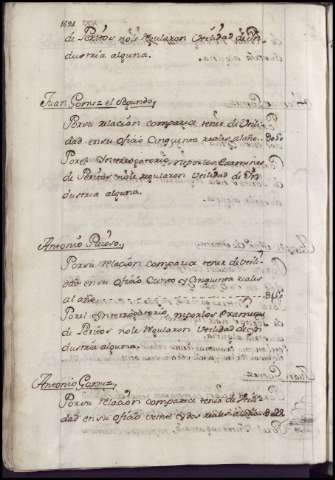 de Peritos nole Regularon Utilidad de Yn
dustria alguna.
Juan Gomez el Segundo,
Porsu relacion comparia tener de Utili
dad en su ofizio Cinquenta reales al año.
Porel Ynterrogatorio, niporlos Examenes
de Peritos nole regularon Utilidad de Yn
dustria alguna.
Antonio
Porsu Relacion comparia tener de Utili
dad en su ofizio Ciento y Cinquenta reales
al año
Porel Ynterrogatorio, niporlos Examenes
de Peritos nole Regularon Utilidad de Yn
dustria alguna.
Antonio Gomez,
Porsu relacion comparia tener de Utili
dad en su ofizio veinte y dos reales